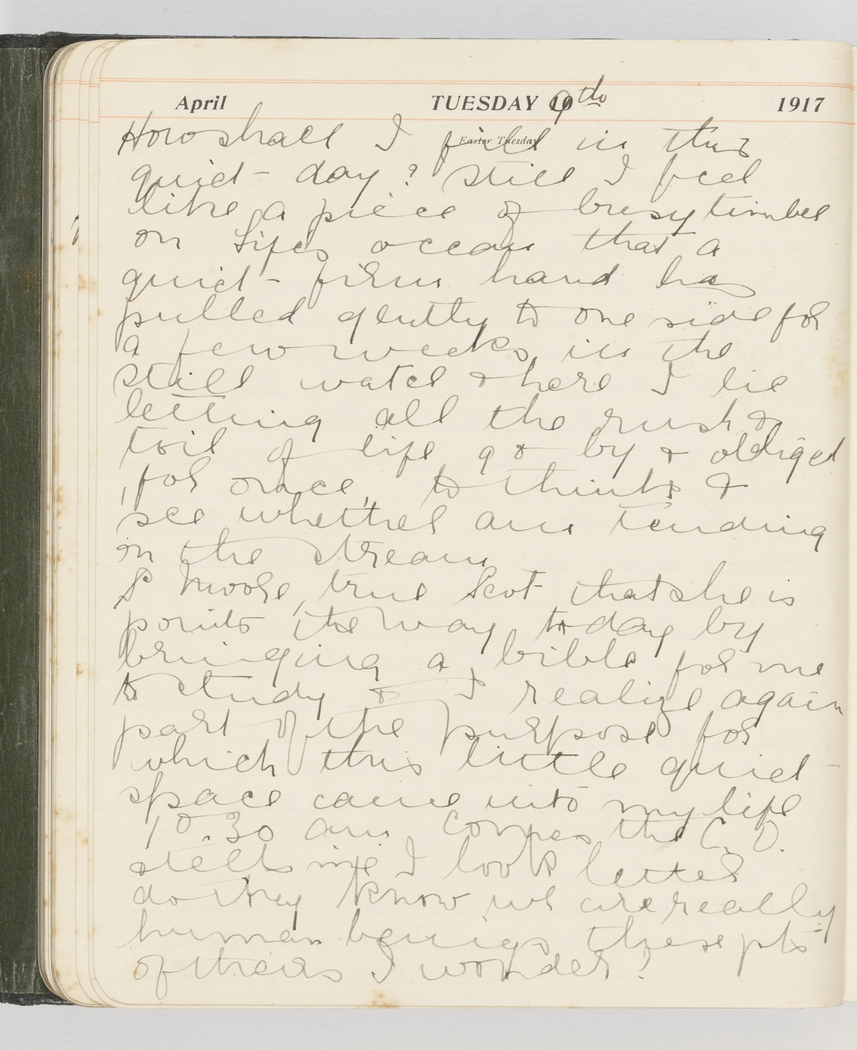 April TUESDAY 10 9th 1917
Easter Tuesday
How shall I fill in this
quiet - day? Still I feel
like a piece of busy timber
on Lifes ocean that a
quiet - firm hand has
pulled gently to one side for
a few weeks, in the
still water & here I lie
letting all the rush &
toil of life go by & obliged
, for once, to think &
see whether am tending
in the stream
S Moore, true Scot that she is
points the way to day by
bringing a bible for me
to study & I realize again
part of the purpose for
which this little quiet -
space came into my life
10.30 am Comes the C.O.
& tells me I look better
do they know we are really
human beings, these pts
of theirs I wonder?